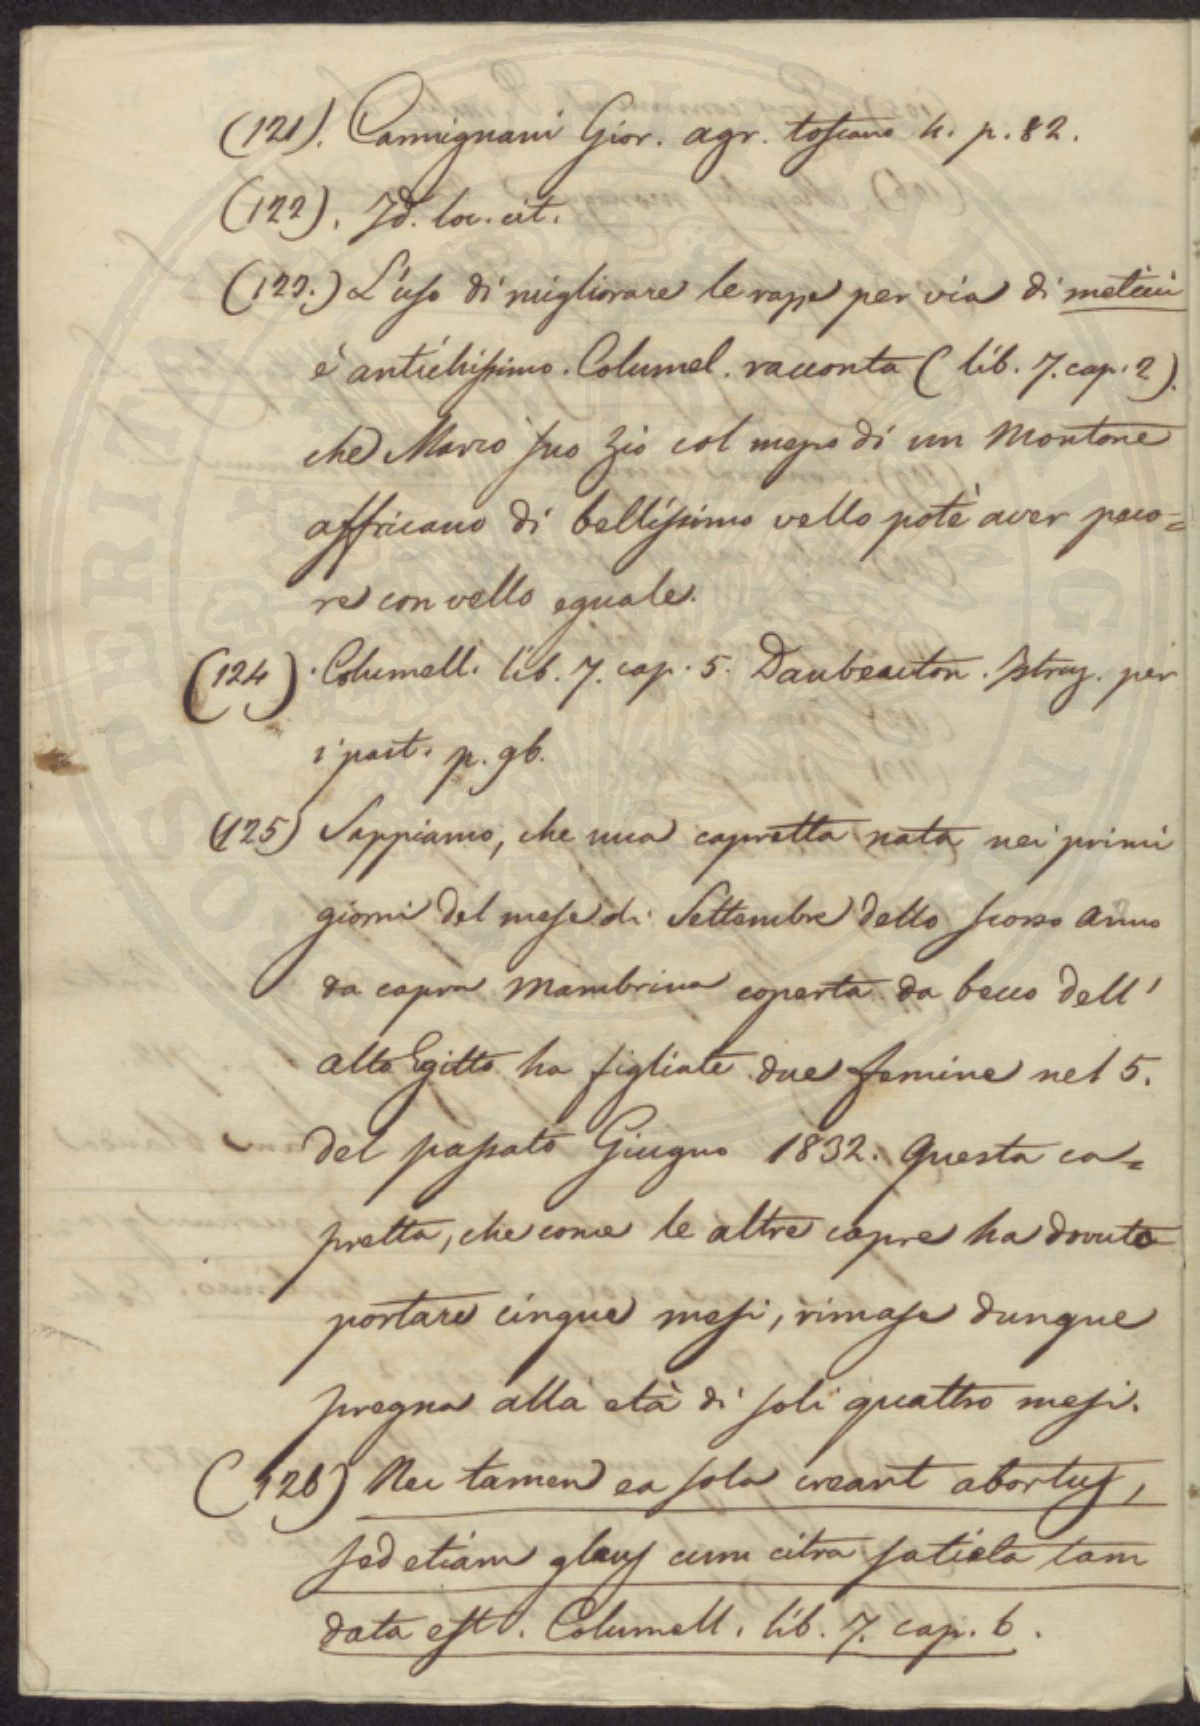 (121). Carmignani Gior. agr. toscano 4. p. 82.
(122). Id. loc. cit.
(123.) L'uso di migliorare le razze per via di meticci
è antichissimo. Columel. racconta ( lib. 7. cap. 2).
che Marco suo Zio col mezzo di un Montone
affricano di bellissimo vello potè aver peco=
re con vello eguale.
(124). Columell. lib. 7. cap. 5. Daubeuton. Istruz. per
i past. p. 96.
(125) Sappiamo, che una capretta nata nei primi
giorni del mese di Settembre dello scorso anno
da capra Mambrina coperta da becco dell'
alto Egitto ha figliate due femine nel 5.
del passato Giugno 1832. Questa ca=
pretta, che come le altre capre ha dovuto
portare cinque mesi, rimase dunque
pregna alla età di soli quattro mesi.
(126) Nec tamen ea sola creant abortus,
sed etiam glans cum citra satietatem
data est. Columell. lib. 7. cap. 6.
SOSPERITAS